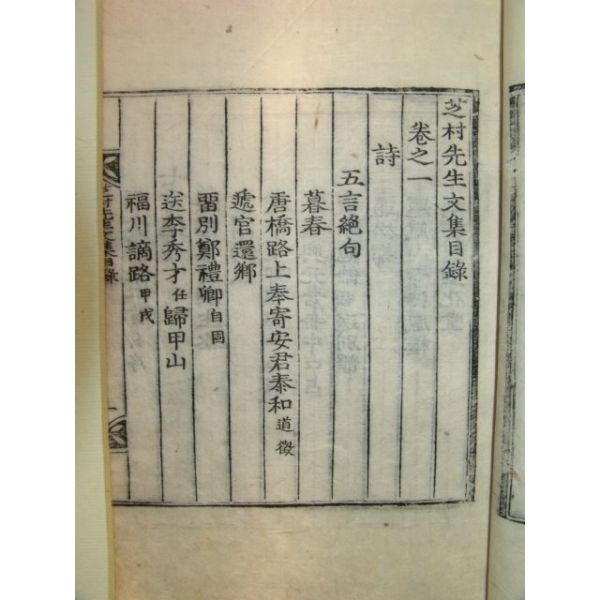 芝村先生文集目錄
卷之一
詩
五言絕句
暮春
唐橋路上奉寄安君泰和道徵
遞官還鄉
留別鄭禮卿自圓
送李秀才任歸甲山
福川謫路甲戌
芝村先生文集目錄
一